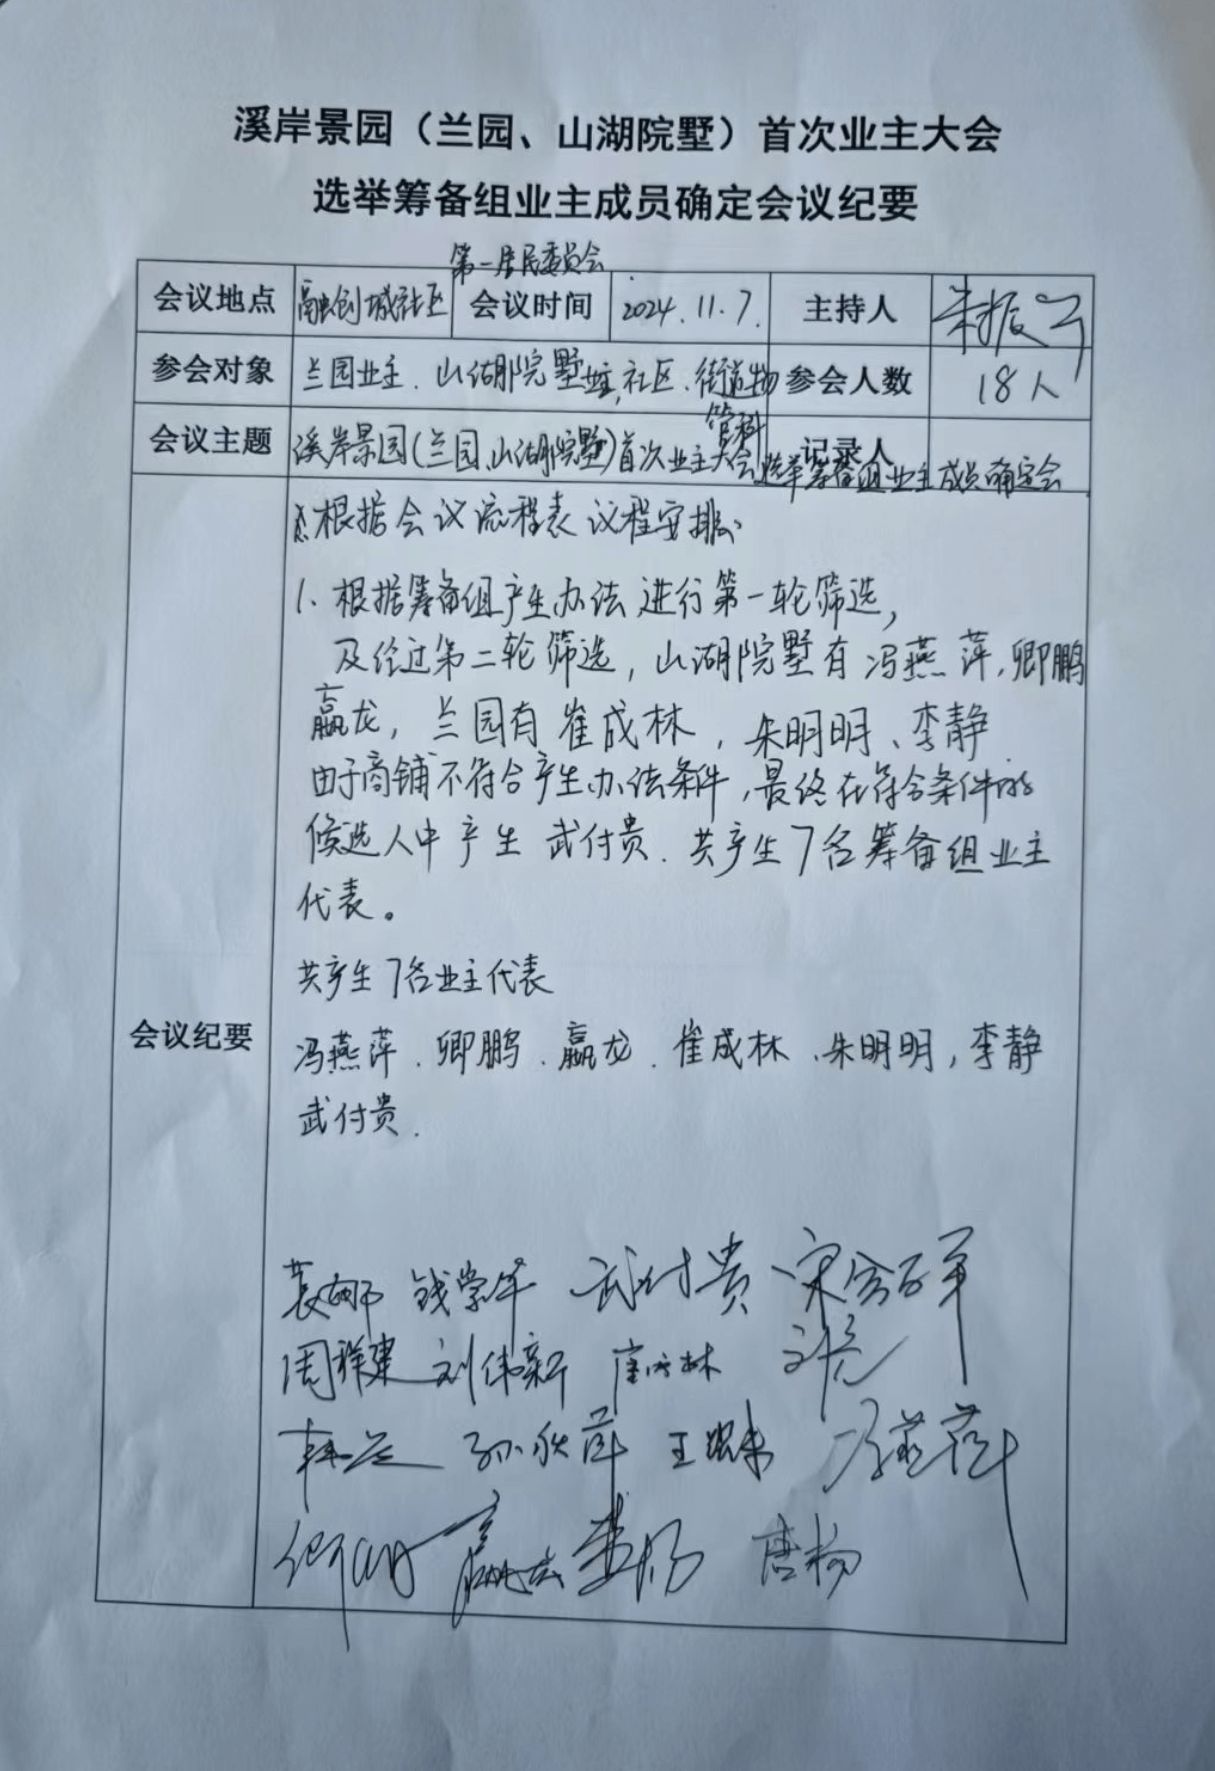 溪岸景园（兰园、山湖院墅）首次业主大会
选举筹备组业主成员确定会议纪要
第一居民委员会
会议地点 融创城社区 会议时间 2024.11.7. 主持人
参会对象 兰园业主.山湖院墅业主,社区.街道物 参会人数 18人
管科
会议主题 溪岸景园(兰园、山湖院墅)首次业主大会 记录人
选举筹备组业主成员确定会
根据会议流程表议程安排:
1、根据筹备组产生办法进行第一轮筛选,
及经过第二轮筛选,山湖院墅有冯燕萍,卿鹏
赢龙,兰园有崔成林,朱明明、李静
由于商铺不符合产生办法条件,最终在符合条件的
候选人中产生武付贵.共产生7名筹备组业主
代表。
共产生7名业主代表
会议纪要
冯燕萍.卿鹏.赢龙.崔成林、朱明明,李静
武付贵.
钱学华 武付贵
周祥建 刘伟新
冯燕萍
赢龙 唐杨